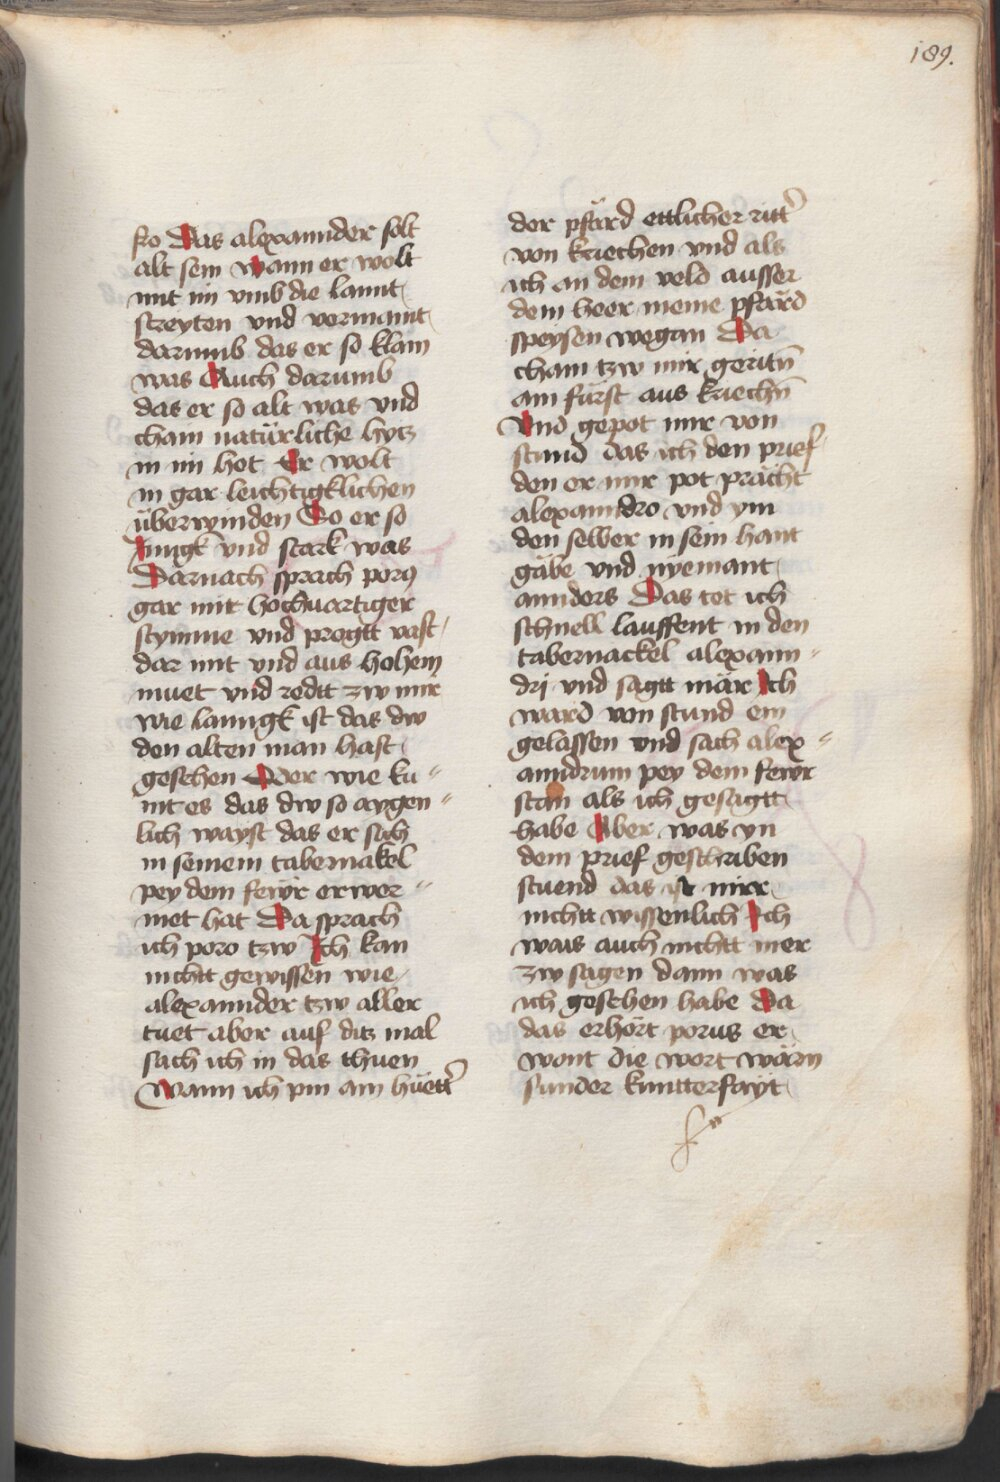 189.
fro Das alexannder solt
alt sein wann er wolt
mit im vmb die lannt
streyten vnd vermaint
darumb das er so klain
was Auch darumb
das er so alt was vnd
chain natürliche hytz
in im het Er wolt
in gar leichtigklichen
überwinden So er so
Jungk vnd stark was
Darnach sprach porꝰ
gar mit hochuartiger
stymme vnd progtt vast
dar mit vnd aus hohem
muet vnd redtt zw mir
wie lanngk ist das dw
den alten man hast
gesehen Oder wie ku⸗
mt es das dw so aygen⸗
lich wayst das er sich
in seinem tabernakel
pey dem fewr erwer⸗
met hat Da sprach
ich poro tzw Ich kan
nichtt gewissen wie
alexannder tzw aller
tuet aber auf ditz mal
sach ich in das thuen
Wann ich pin ain hüett̉
der pfärd ettlicher ritt̉
von kriechen vnd als
ich an dem veld ausser
dem heer meine pfärd
speysen wegan Da
cham tzw mir geritn̄
ain fürst aus kriechn̄
Vnd gepot mir von
stund das ich den prief
den er mir pot prächt
alexanndro vnd ym
den selber in sein hant
gäbe vnd nyemant
annders Das tet ich
schnell lauffent in den
tabernackel alexann⸗
dri vnd sagtt mär Ich
ward von stund ein
gelassen vnd sach alex⸗
anndrum pey dem fewr
stan als ich gesagtt
habe Aber was yn
dem prief geschriben
stuend das ist mir
nichtt wissenlich Ich
wais auch nichtt mer
zw sagen dann was
ich gesehen habe Da
das erhört porus er
wont die wort wärn
sunder kuntterfayt